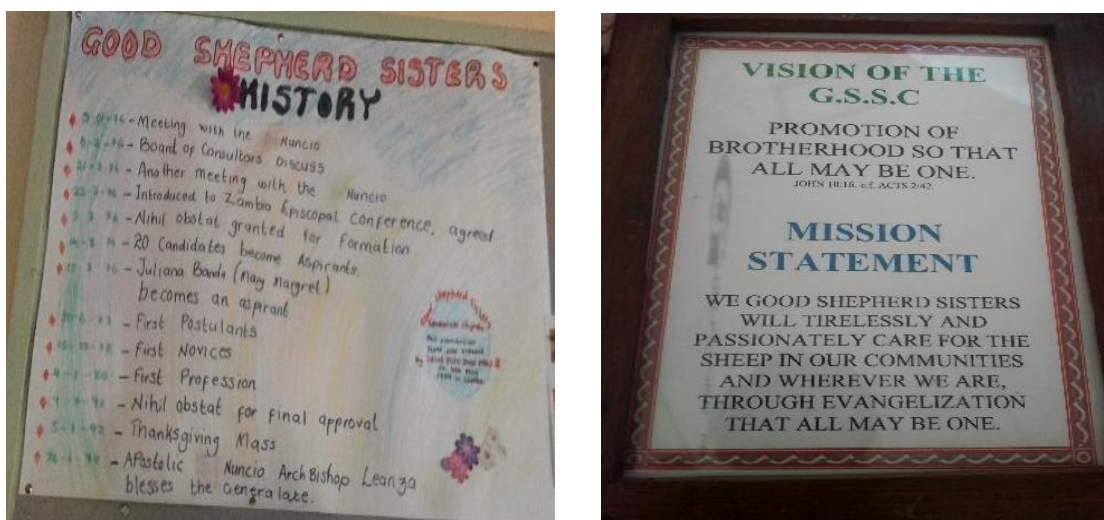 GOOD SHEPHERD SISTERS
HISTORY
- Meeting with the Nuncio
- Board of Consultors Discuss
- Another meeting with the Nuncio
- Introduced to Zambia Episcopal Conference, agreed
- Nihil obstat granted for Formation
- 20 Candidates become Aspirants.
- Juliana Banda (Mary Margret)
becomes an aspirant
- First Postulants
- First Novices
- First Profession
- Nihil obstat for final approval
- Thanksgiving Mass
- APostolic Nuncio ArchBishop Leanza
blesses the Generalate.
VISION OF THE
G.S.S.C
PROMOTION OF
BROTHERHOOD SO THAT
ALL MAY BE ONE.
JOHN 10:16. c.f. ACTS 2:42.
MISSION
STATEMENT
WE GOOD SHEPHERD SISTERS
WILL TIRELESSLY AND
PASSIONATELY CARE FOR THE
SHEEP IN OUR COMMUNITIES
AND WHEREVER WE ARE,
THROUGH EVANGELIZATION
THAT ALL MAY BE ONE.